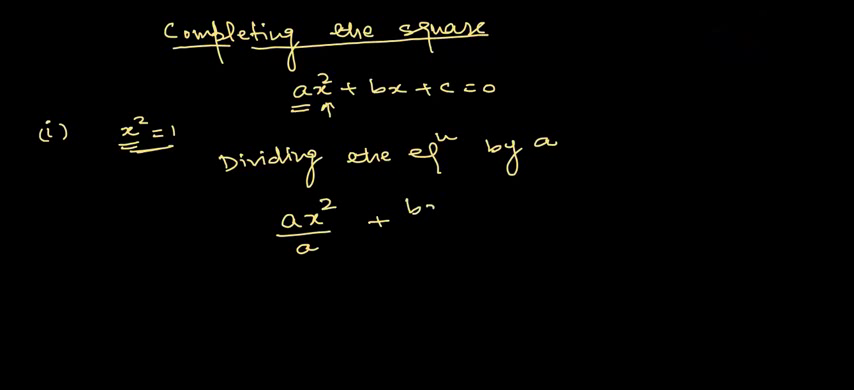 Completing the square
ax² + bx + c = 0
(i) x² = 1
Dividing the eqⁿ by a
ax²/a + b